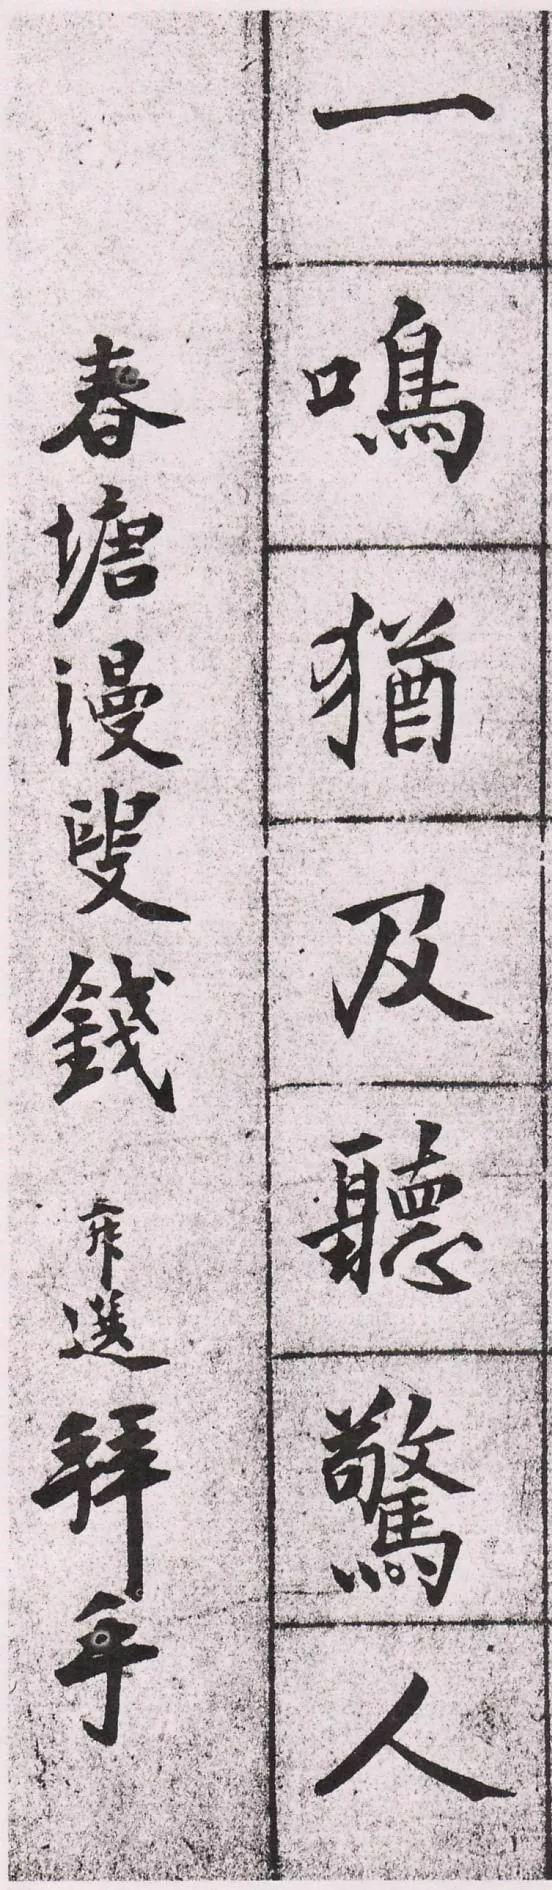 一鳴猶及聽驚人
春塘漫叟錢 選拜手